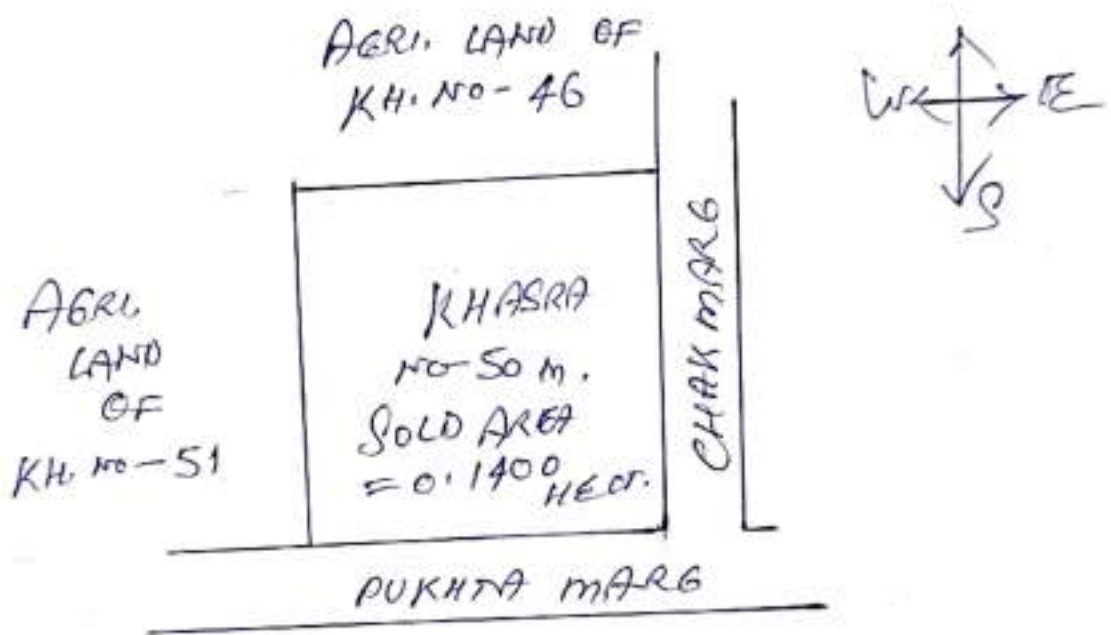 AGRI. LAND OF
KH. NO - 46
W E
S
AGRI.
LAND
OF
KH. NO - 51
KHASRA
NO - 50 m.
SOLD AREA
= 0.1400 HECT.
CHAK MARG
PUKHTA MARG